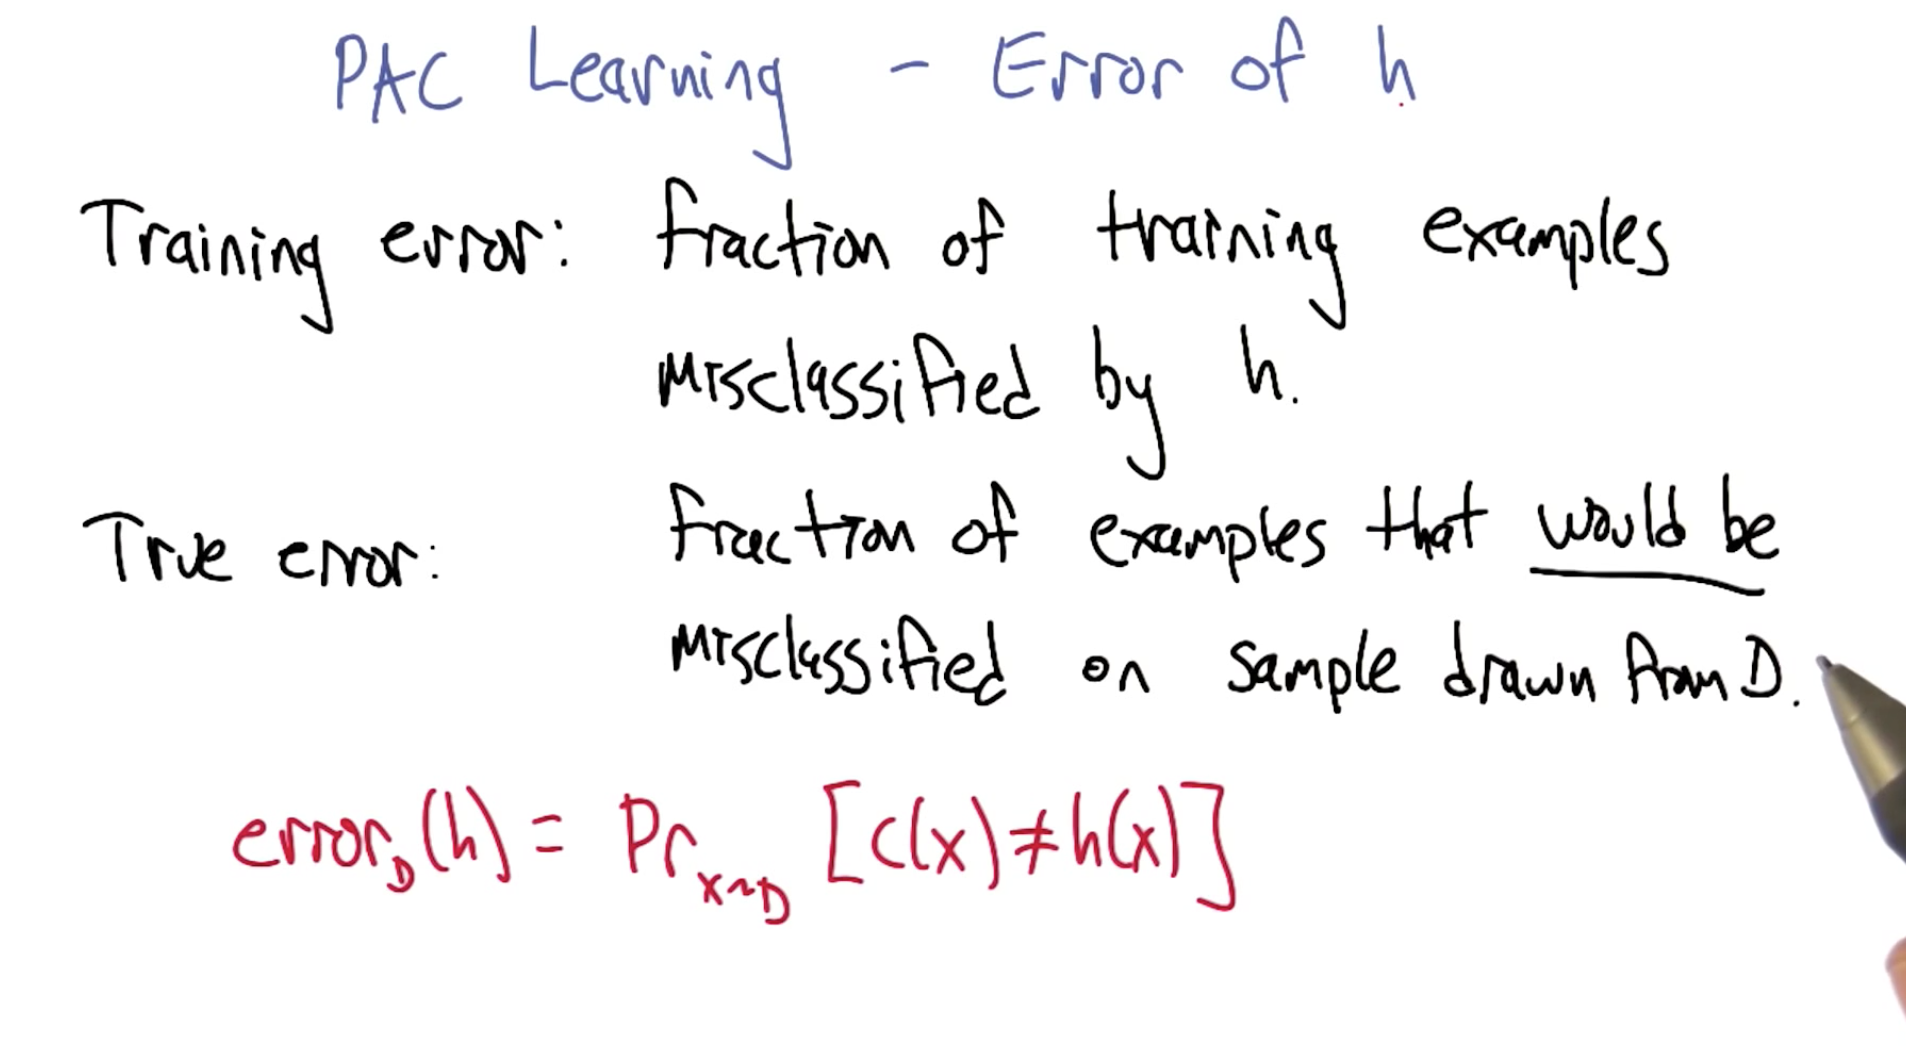 PAC Learning - Error of h
Training error: fraction of training examples
misclassified by h.
True error: fraction of examples that would be
misclassified on sample drawn from D.
error_D(h) = Pr_x~D [c(x)≠h(x)]